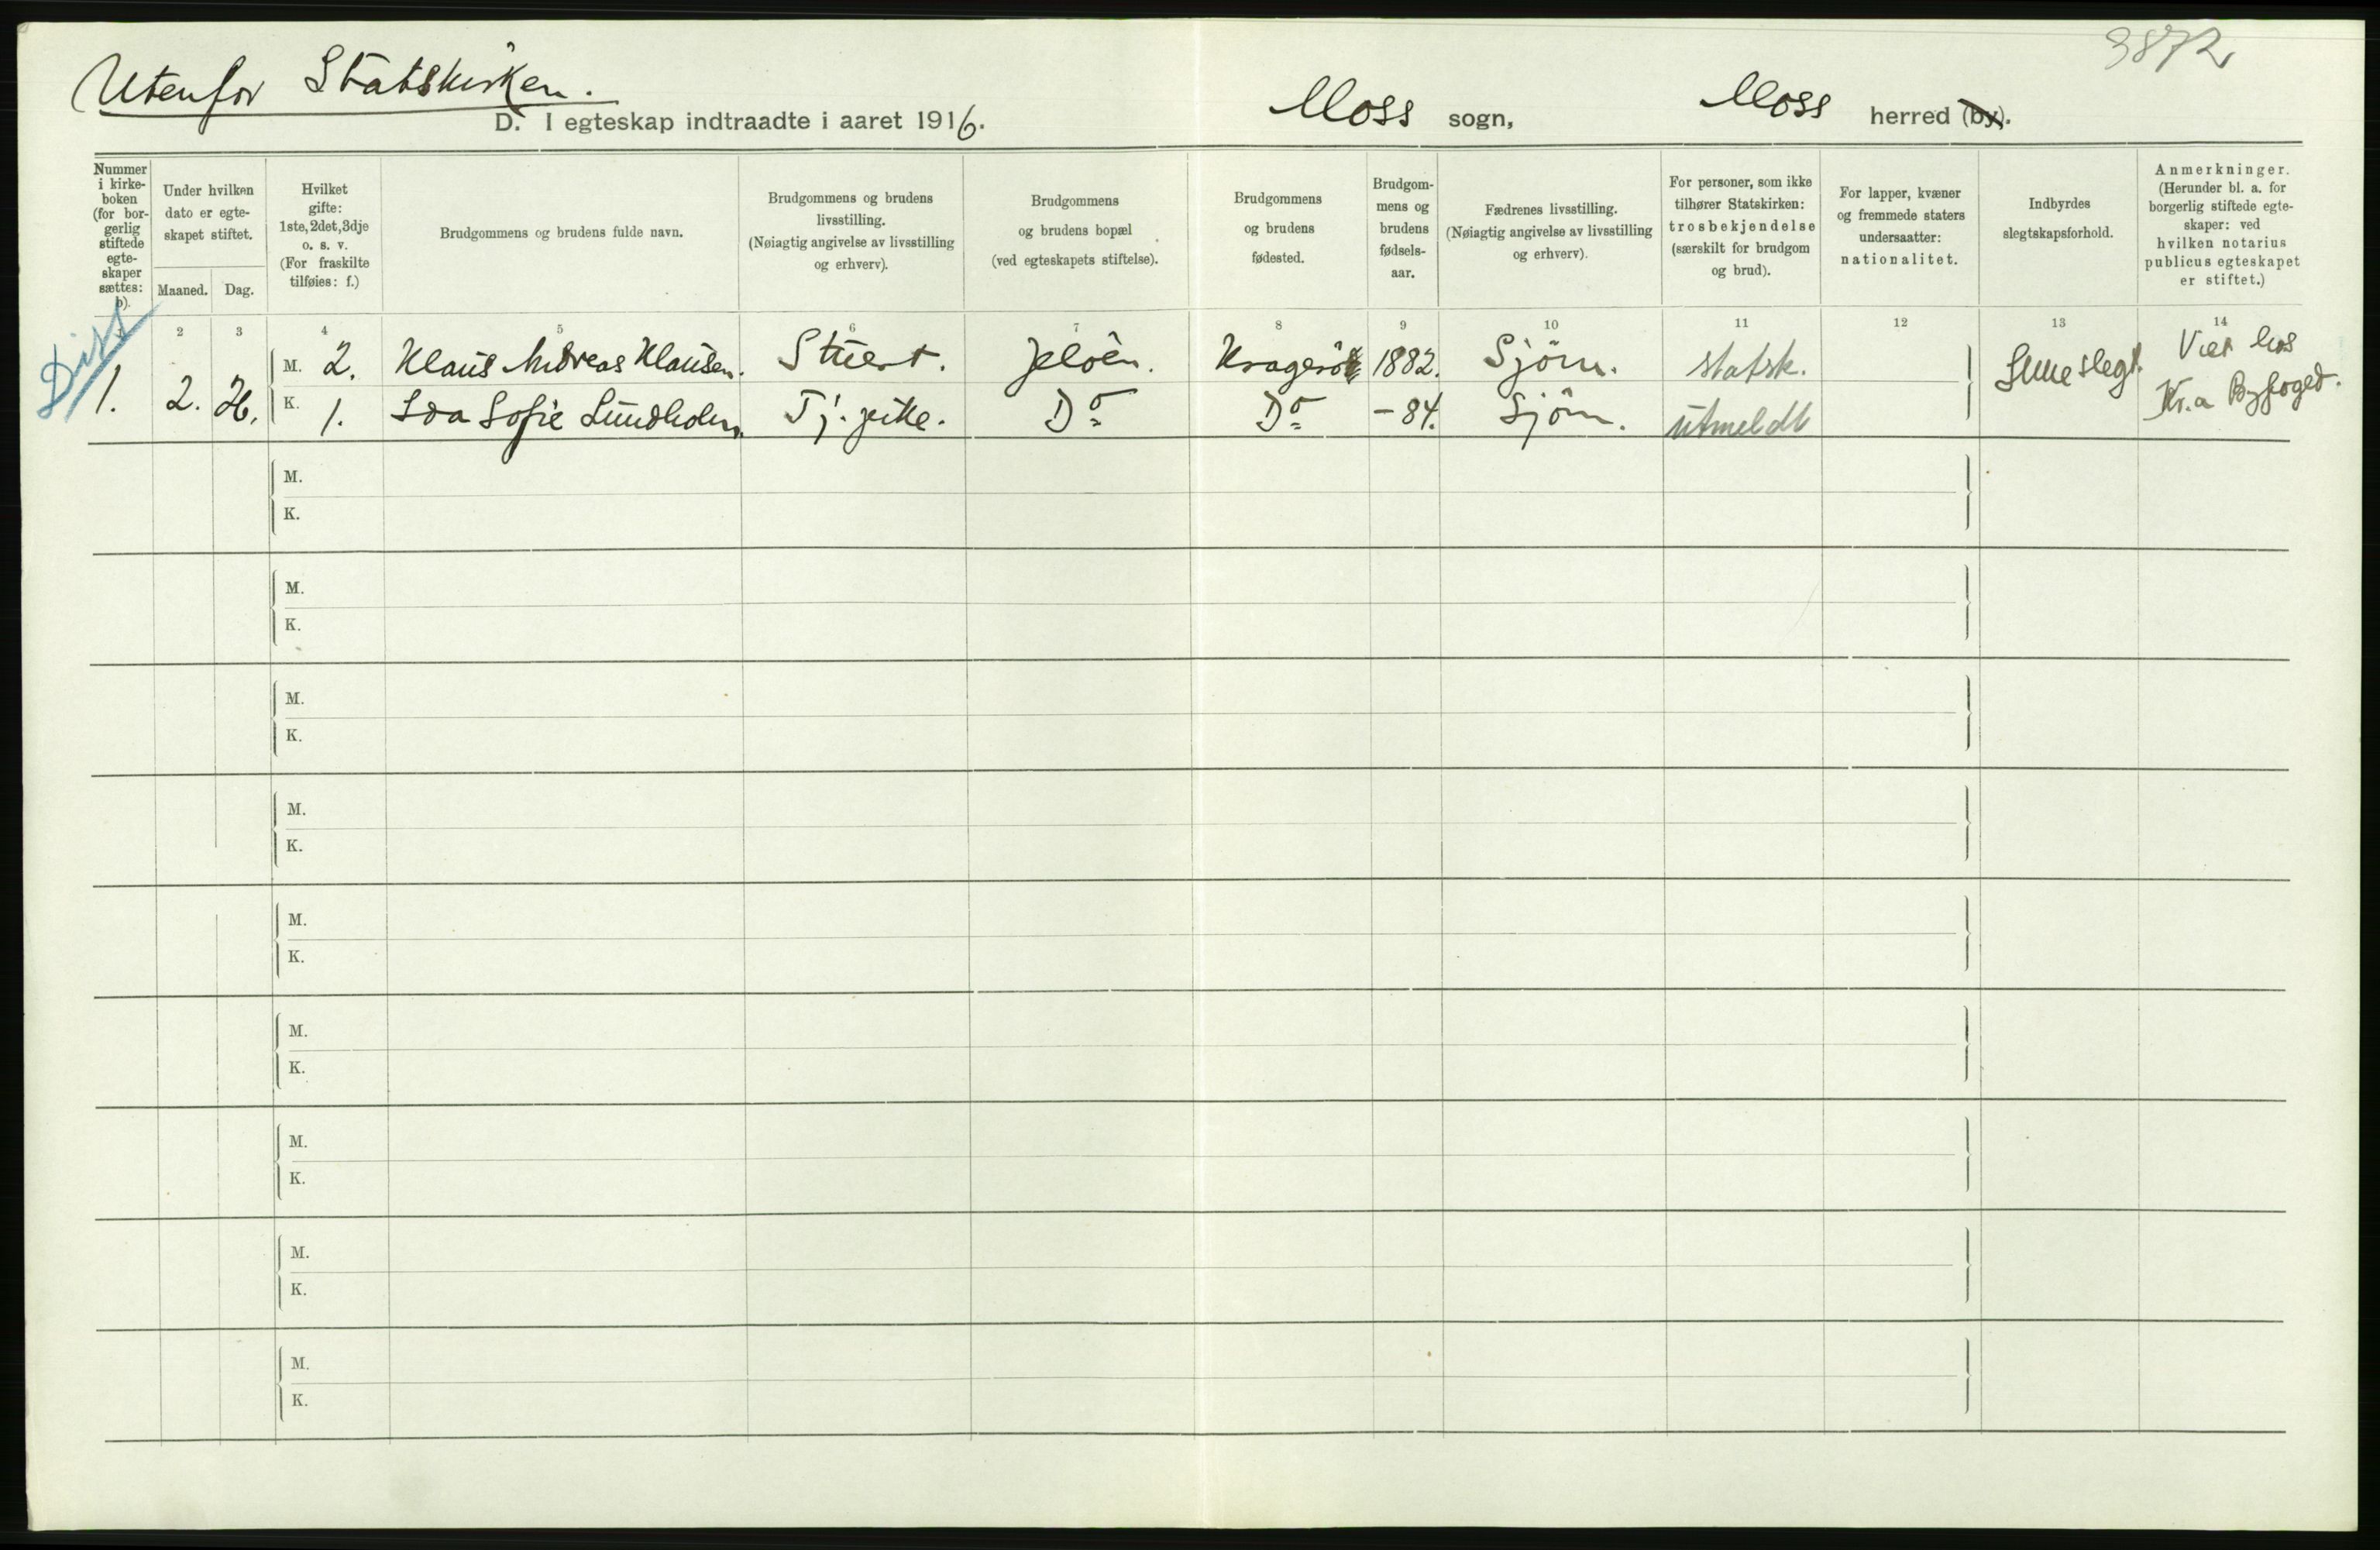 3872
Utenfor Statskirken.
D. I egteskap indtraadte i aaret 1916. Moss sogn, Moss herred (by).
Nummer i kirkeboken (for borgerlig stiftede egteskaper sættes: b).
Under hvilken dato er egteskapet stiftet.
Maaned. Dag.
Hvilket gifte: 1ste, 2det, 3dje o. s. v. (For fraskilte tilføies: f.)
Brudgommens og brudens fulde navn.
Brudgommens og brudens livsstilling. (Nøiagtig angivelse av livsstilling og erhverv).
Brudgommens og brudens bopæl (ved egteskapets stiftelse).
Brudgommens og brudens fødested.
Brudgommens og brudens fødselsaar.
Fædrenes livsstilling. (Nøiagtig angivelse av livsstilling og erhverv).
For personer, som ikke tilhører Statskirken: trosbekjendelse (særskilt for brudgom og brud).
For lapper, kvæner og fremmede staters undersaatter: nationalitet.
Indbyrdes slegtskapsforhold.
Anmerkninger. (Herunder bl. a. for borgerlig stiftede egteskaper: ved hvilken notarius publicus egteskapet er stiftet.)
1 2 3 4 5 6 7 8 9 10 11 12 13 14
Diss
M. 2. Klaus Andreas Klausen. Stuert. Jeløen. Kragerø 1882. Sjøm. statsk. Viet hos
1. 2. 26. K. 1. Ida Sofie Lundholm. Tj. pike. Do Do - 84. Sjøm. utmeldt slegt. Kr.a Byfoged.
M.
K.
M.
K.
M.
K.
M.
K.
M.
K.
M.
K.
M.
K.
M.
K.
M.
K.